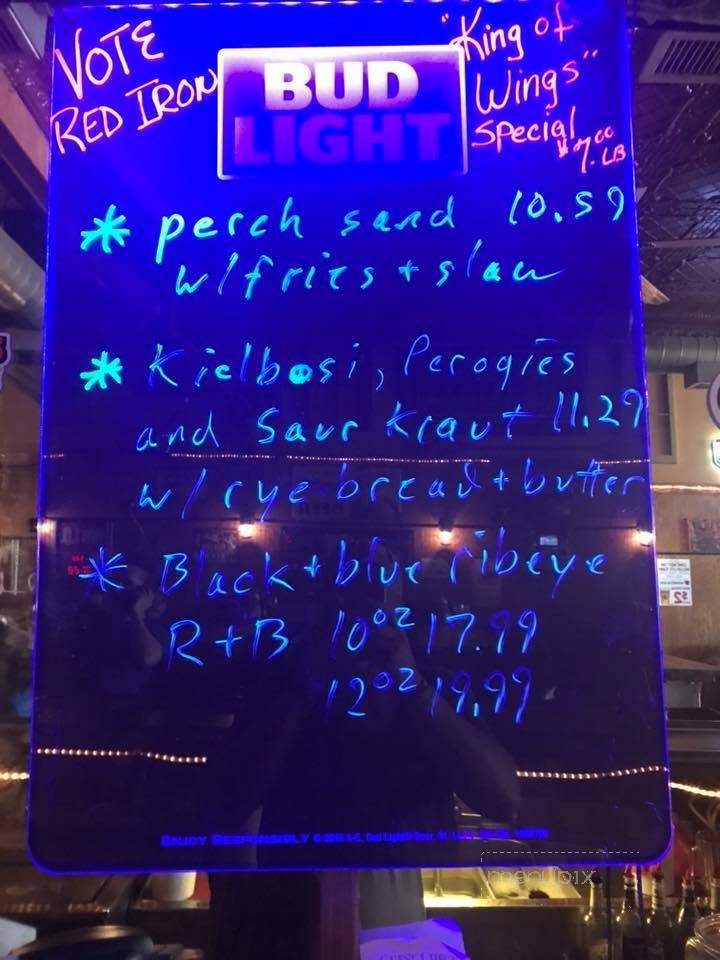 VOTE
RED IRON
BUD
LIGHT
"King of
Wings"
Special
$7.00 LB
* perch sand 10.59
w/fries + slaw
* Kielbasi, Perogies
and Saur Kraut 11.29
w/ rye bread + butter
* Black + blue ribeye
R+B 10oz 17.99
12oz 19.99
ENJOY RESPONSIBLY
menupix